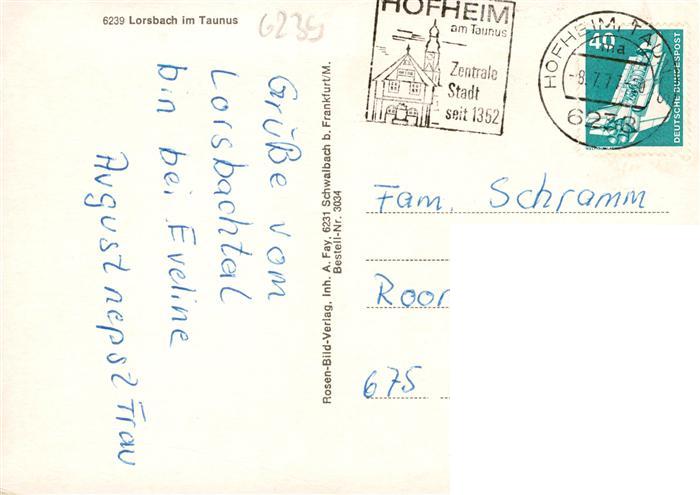 6239 Lorsbach im Taunus
6239
HOFHEIM
am Taunus
Zentrale
Stadt
seit 1352
HOFHEIM, TAU
ma
-8.7.7
6238
40
DEUTSCHE BUNDESPOST
Grüße vom
Lorsbachtal
bin bei Eveline
August nepst Frau
Rosen-Bild-Verlag, Inh. A. Fay, 6231 Schwalbach b. Frankfurt/M.
Bestell-Nr. 3034
Fam. Schramm
Roor
675